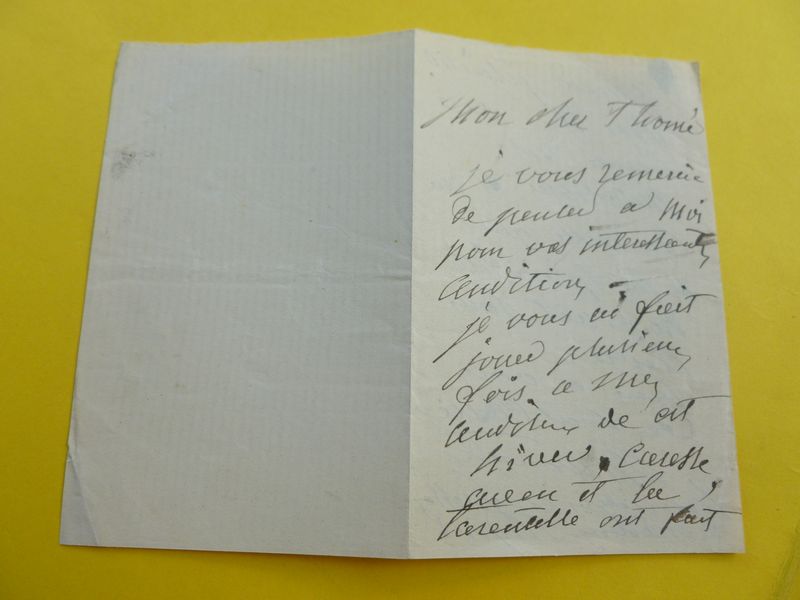 Mon cher Thomé
je vous remercie
de penser a moi
pour vos interessantes
auditions –
je vous ai fait
jouer plusieurs
fois a mes
auditions de cet
hiver, Caresse
et la
tarentelle ont fait